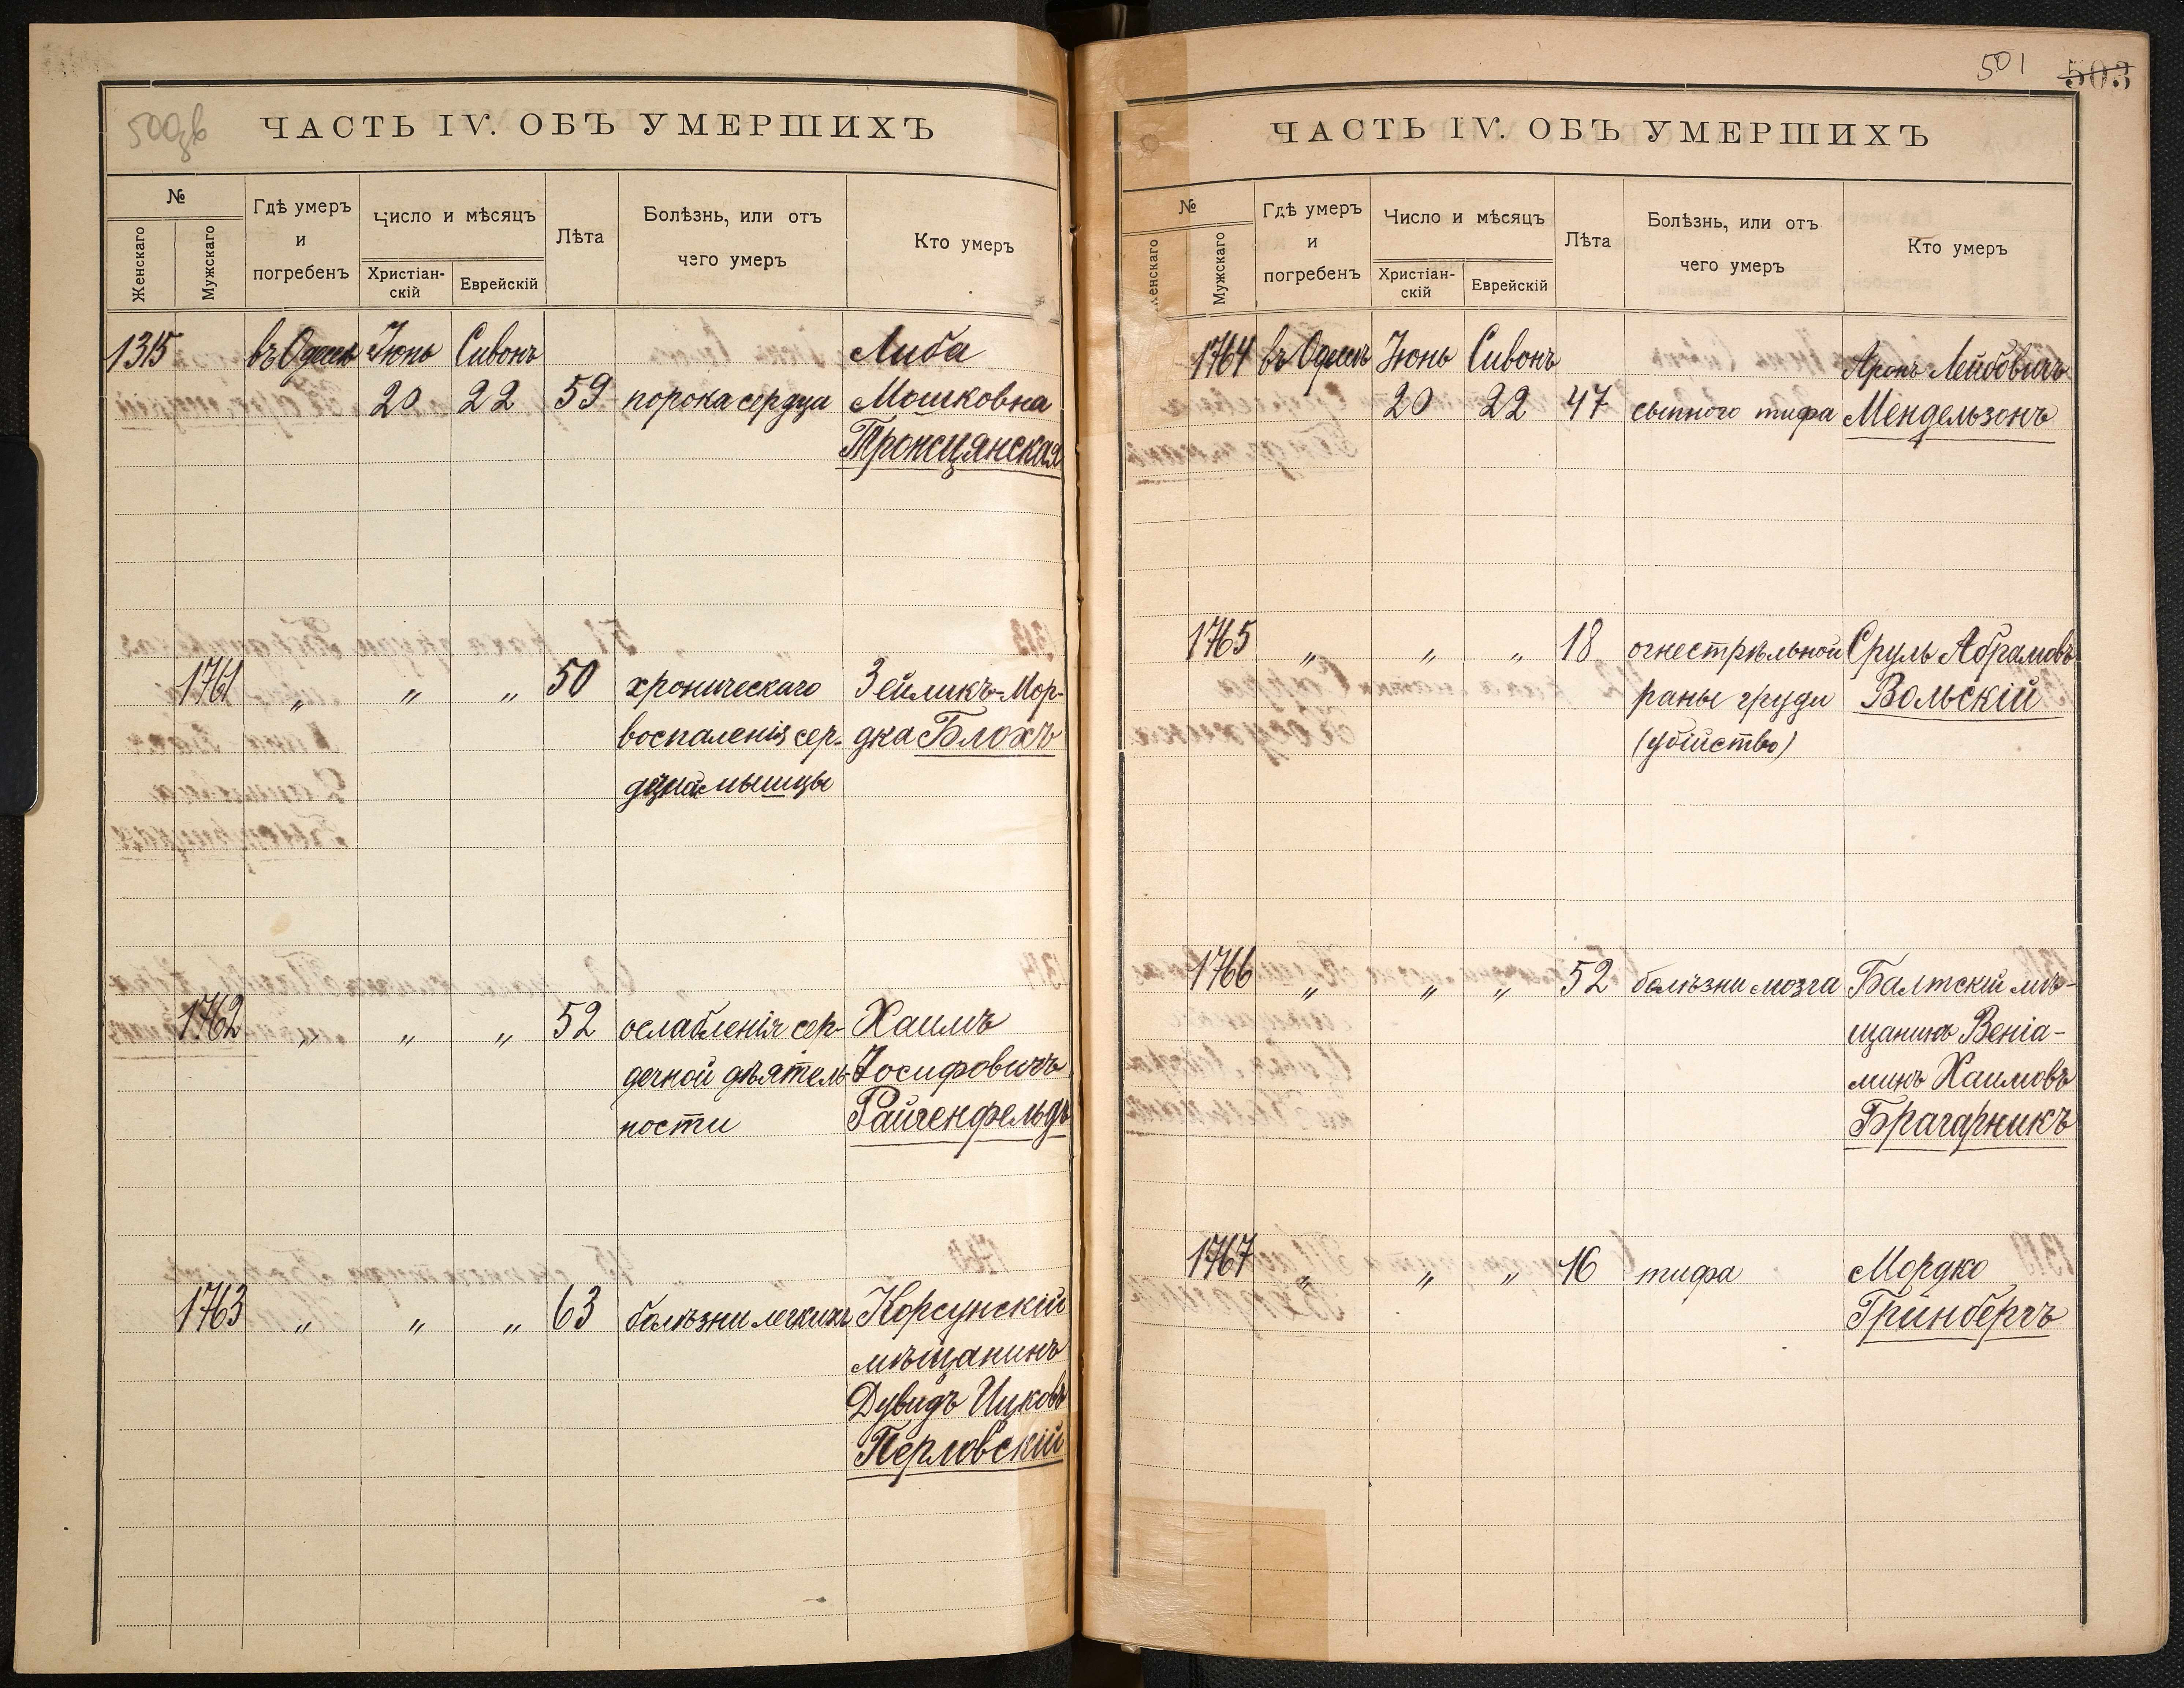 500об
ЧАСТЬ IV. ОБЪ УМЕРШИХЪ
№
Женскаго
Мужскаго
Гдѣ умеръ
и
погребенъ
Число и мѣсяцъ
Христіан-
скій
Еврейскій
Лѣта
Болѣзнь, или отъ
чего умеръ
Кто умеръ
1315 въ Одессѣ Іюнь Сивонъ Либа
20 22 59 порока сердца Мошковна
Тронсцянская
1761 „ „ „ 50 хроническаго Зейликъ-Мор-
воспаленія сер- дка Блохъ
мышцы
1762 „ „ „ 52 ослабленія сер- Хаимъ
дечной дѣятель- Іосифовичъ
ности Райгенфельдъ
1763 „ „ „ 63 болѣзни легкихъ Корсунскій
мѣщанинъ
Дувидъ Ицковъ
Перловскій
501 503
ЧАСТЬ IV. ОБЪ УМЕРШИХЪ
№
Женскаго
Мужскаго
Гдѣ умеръ
и
погребенъ
Число и мѣсяцъ
Христіан-
скій
Еврейскій
Лѣта
Болѣзнь, или отъ
чего умеръ
Кто умеръ
1764 въ Одессѣ Іюнь Сивонъ Аронъ Лейбовичъ
20 22 47 сыпного тифа Мендельзонъ
1765 „ „ „ 18 огнестрѣльной Сруль Абрамовъ
раны груди Вольскій
(убійство)
1766 „ „ „ 52 болѣзни мозга Балтскій мѣ-
щанинъ Веніа-
минъ Хаимовъ
Брагарникъ
1767 „ „ „ 16 тифа Мордко
Гринбергъ